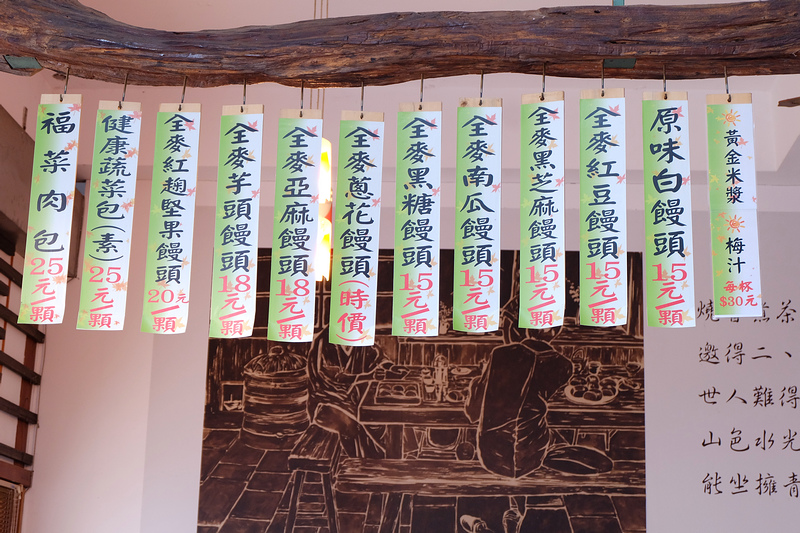 福菜肉包25元/顆
健康蔬菜包(素)25元/顆
全麥紅麴堅果饅頭20元/顆
全麥芋頭饅頭18元/顆
全麥亞麻饅頭18元/顆
全麥蔥花饅頭(時價)
全麥黑糖饅頭15元/顆
全麥南瓜饅頭15元/顆
全麥黑芝麻饅頭15元/顆
全麥紅豆饅頭15元/顆
原味白饅頭15元/顆
黃金米漿 梅汁
每杯
$30元
茶
邀得二、
世人難得
山色水光
能坐擁青